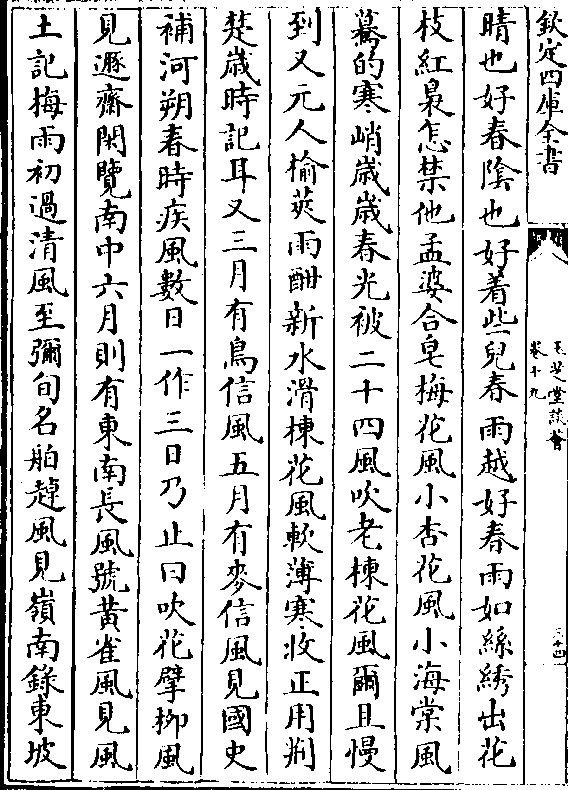 欽定四庫全書
玉芝堂談薈
卷十九
三十四
晴也好春陰也好着些兒春雨越好春雨如絲綉出花
枝紅裊怎禁他孟婆合皂梅花風小杏花風小海棠風
驀的寒峭歲歲春光被二十四風吹老楝花風爾且慢
到又元人榆莢雨酣新水滑楝花風軟薄寒收正用荆
楚歲時記耳又三月有鳥信風五月有麥信風見國史
補河朔春時疾風數日一作三日乃止曰吹花擘柳風
見遯齋閑覽南中六月則有東南長風號黄雀風見風
土記梅雨初過清風至彌旬名舶趠風見嶺南錄東坡